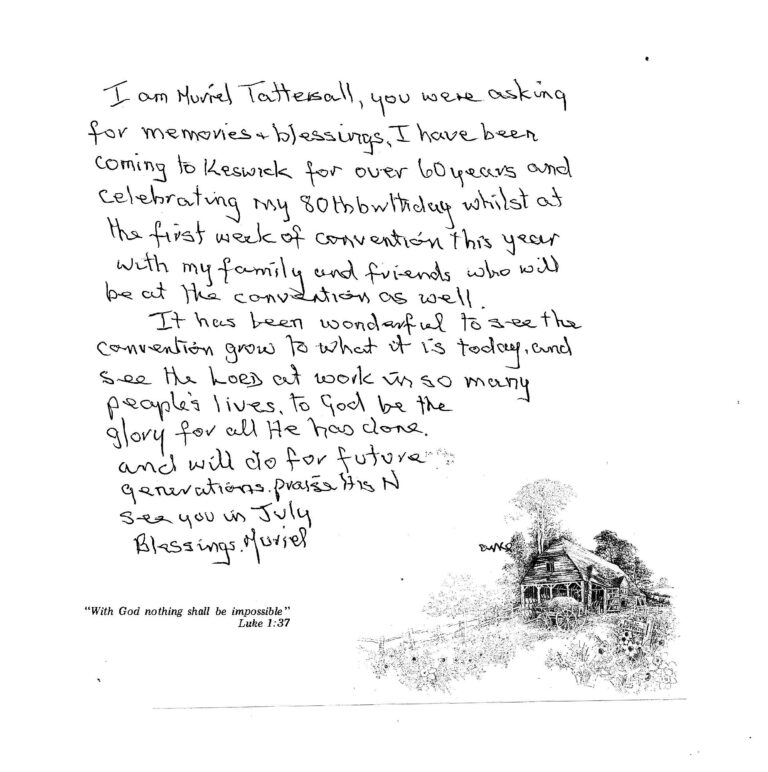 I am Muriel Tattersall, you were asking
for memories + blessings. I have been
coming to Keswick for over 60 years and
celebrating my 80th birthday whilst at
the first week of convention this year
with my family and friends who will
be at the convention as well.
It has been wonderful to see the
convention grow to what it is today, and
see the LORD at work in so many
people's lives. to God be the
glory for all He has done.
and will do for future
generations. praise His N
see you in July
Blessings. Muriel
"With God nothing shall be impossible"
Luke 1:37